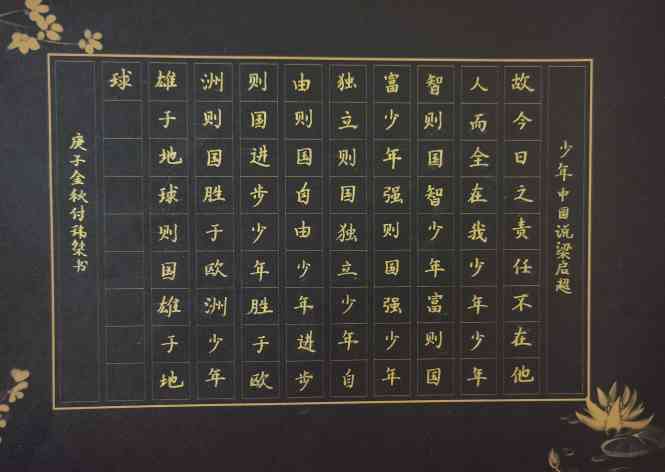 少年中国说梁启超
故今日之责任不在他
人而全在我少年少年
智则国智少年富则国
富少年强则国强少年
独立则国独立少年自
由则国自由少年进步
则国进步少年胜于欧
洲则国胜于欧洲少年
雄于地球则国雄于地
球
庚子金秋付书